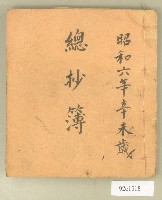 昭和六年辛未歲
總抄簿
9261518